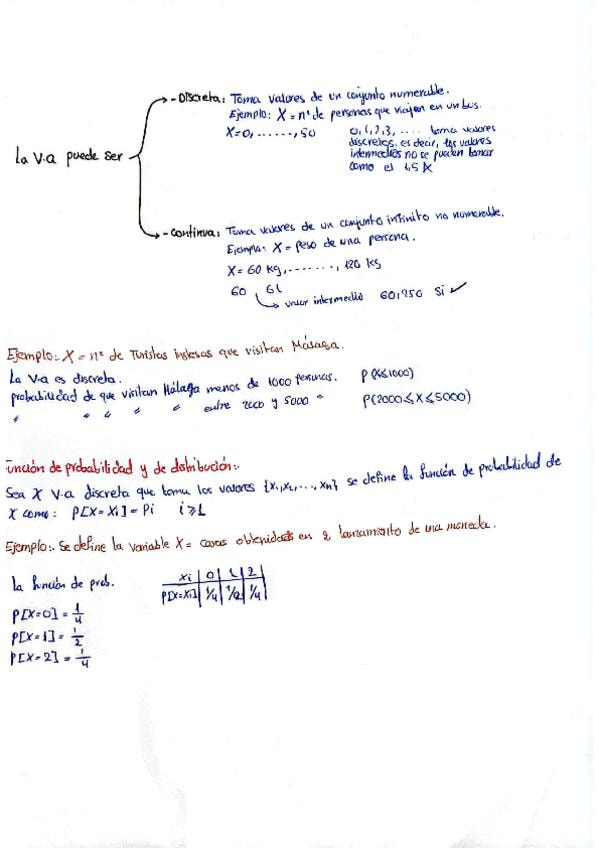 La v.a puede ser
- Discreta: Toma valores de un conjunto numerable.
Ejemplo: X = nº de personas que viajen en un bus.
X=0,.......,50
0,1,2,3, .... toma valores
discretos, es decir, los valores
intermedios no se pueden tomar
como el 1,5 X
- Continua: Toma valores de un conjunto infinito no numerable.
Ejemplo: X = peso de una persona.
X= 60 kg,.......,120 kg
60 61
valor intermedio 60,250 Si ✓
Ejemplo:. X = nº de Turistas inglesas que visitan Málaga.
La v.a es discreta.
probabilidad de que visitan Málaga menos de 1000 personas. P(X≤1000)
" " " " " entre 2000 y 5000 " P(2000≤X≤5000)
unción de probabilidad y de distribución:.
Sea X v.a discreta que toma los valores {x1,x2,...,xn} se define la función de probabilidad de
X como: P[X=Xi]=Pi i≥1
Ejemplo:. Se define la variable X= caras obtenidas en 2 lanzamiento de una moneda.
la función de prob.
xi | 0 | 1 | 2
P[X=Xi] | 1/4 | 1/2 | 1/4
P[X=0]=1/4
P[X=1]=1/2
P[X=2]=1/4